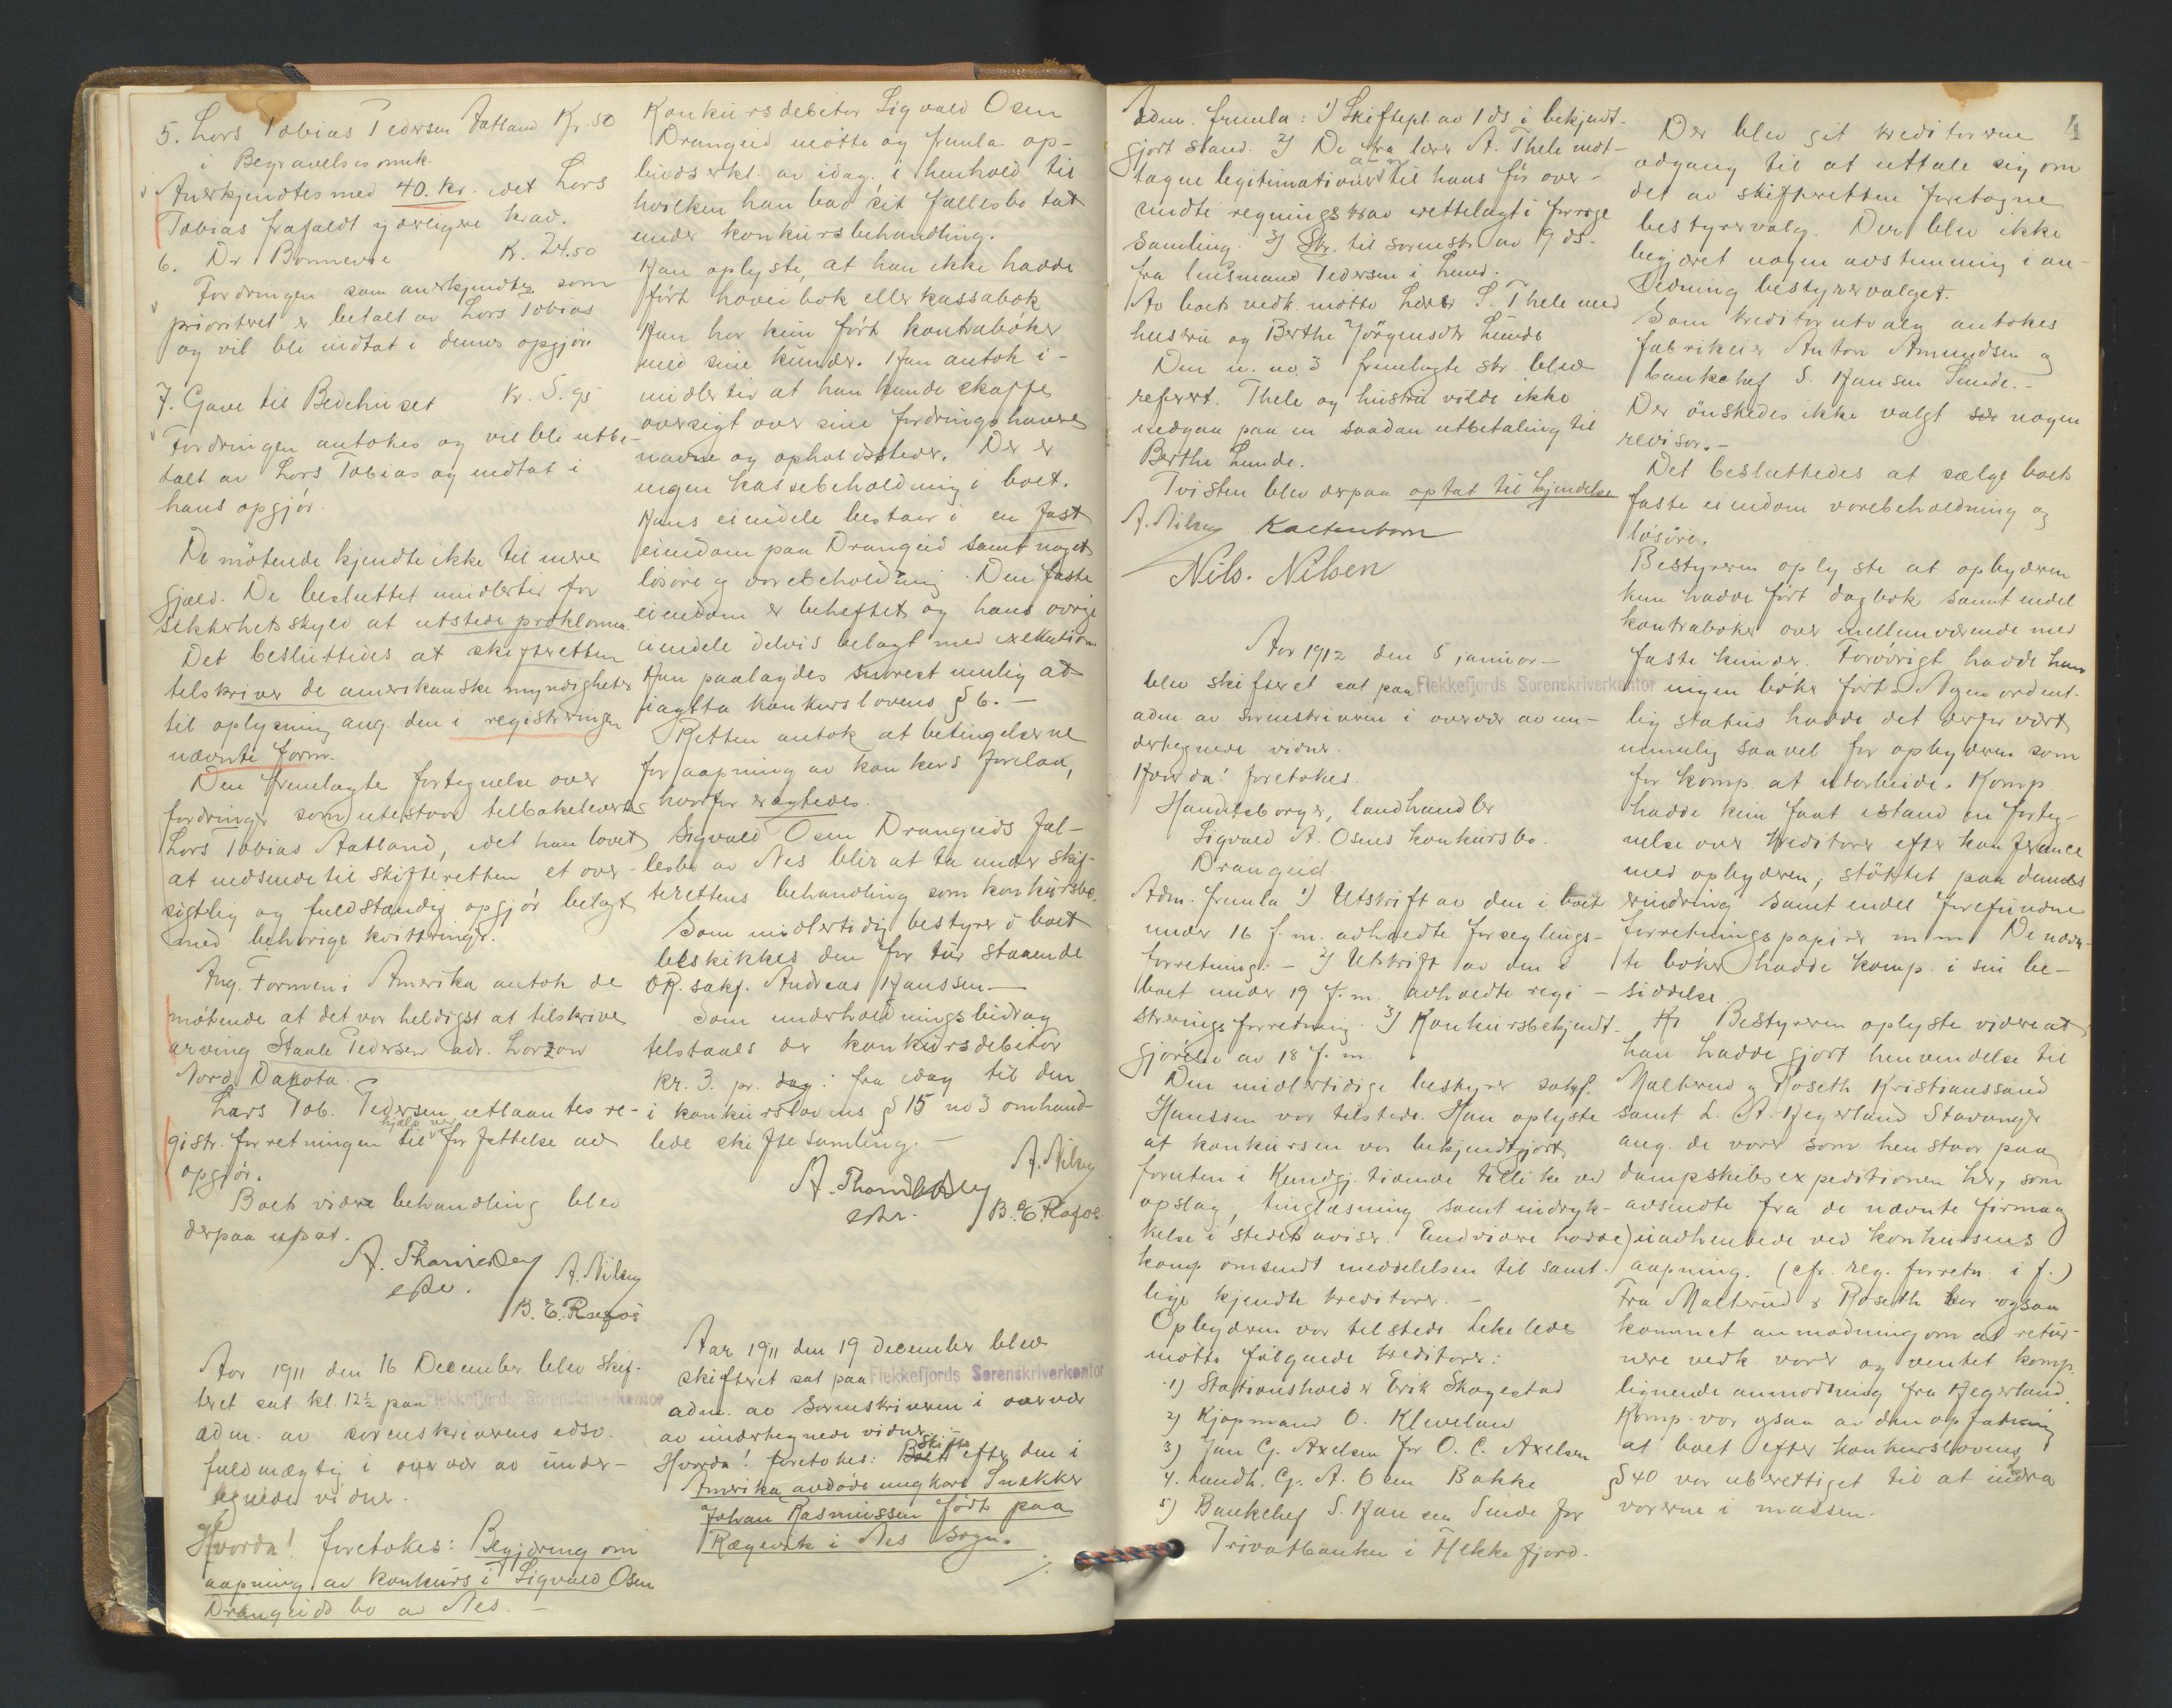 5. Lars Tobias Pedersen Aatland Kr. 50
i Begravelsesomk.
Anerkjendtes med 40. kr. idet Lars
Tobias frafaldt yderligere krav.
6. Dr Bonnevie Kr. 24.50
Fordringen som anerkjendtes som
prioritert er betalt av Lars Tobias
og vil bli indtat i dennes opgjør.
7. Gave til Bedehuset Kr. 5.95
Fordringen antokes og vil bli utbe-
talt av Lars Tobias og indtat i
hans opgjør.
De møtende kjendte ikke til mere
gjæld. De besluttet imidlertid for
sikkerhetsskyld at utstede proklama.
Det besluttedes at skifteretten
telskriver de amerikanske myndigheter
til oplysning ang. den i registreringen
nævnte farm.
Den fremlagte fortegnelse over
fordringer som utestaar tilbakeleverte
Lars Tobias Aatland, idet han lovet
at nedsende til skifteretten et over-
sigtlig og fuldstændig opgjør belagt
med behørige kvitteringer.
Ang. Farmen i Amerika antok de
møtende at det var heldigst at tilskrive
arving Staale Pedersen adr. Larzon
Nord Dakota.
Lars Tob. Pedersen utlaantes re-
gistr. forretningen til hjælp ved forfattelse av
opgjør.
Boets videre behandling blev
derpaa utsat.
A. Nilsen
B. E. Rafos
Aar 1911 den 16 December blev skif-
teret sat kl. 12½ paa Flekkefjords Sorenskriverkontor
adm. av sorenskriverens edsv.
fuldmægtig i overvær av under-
tegnede vidner.
Hvorda! foretokes: Begjæring om
aapning av konkurs i Sigvald Osen
Drangeids bo av Nes. -
Konkursdebitor Sigvald Osen
Drangeid møtte og fremla op-
budserkl. av idag, i henhold til
hvilken han bad sit fællesbo tat
under konkursbehandling.
Han oplyste at han ikke hadde
ført hovedbok eller kassabok
Han har kun ført kontrabøker
med sine kunder. Han antok i-
midlertid at han kunde skaffe
oversigt over sine fordringshavere
navne og opholdssteder. Der er
ingen kassebeholdning i boet.
Hans eiendele bestaar i en fast
eiendom paa Drangeid samt noget
løsøre og varebeholdning. Den faste
eiendom er beheftet og hans øvrige
eiendele delvis belagt med exekution
Han paalagdes snarest mulig at
iagtta konkurslovens § 6. -
Retten antok at betingelserne
for aapning av konkurs forelaa,
hvorfor eragtedes.
Sigvald Osen Drangeids fæl-
lesbo av Nes blir at ta under skif-
terettens behandling som konkursbo.
Som midlertidig bestyrer i boet
beskikkes den for tur staaende
OR. sakf. Andreas Hanssen. -
Som underholdningsbidrag
telstaaes der konkursdebitor
kr. 3. pr. dag: fra idag til den
i konkurslovens § 15 no 3 omhand-
lede skiftesamling. -
A. Nilsen
B. E. Rafos.
Aar 1911 den 19 december blev
skifteret sat paa Flekkefjords Sorenskriverkontor
adm. av sorenskriveren i overvær
av undertegnede vidner.
Hvorda! foretokes: Skifte efter den i
Amerika avdøde ungkarl Snekker
Johan Rasmussen født paa
Rægevik i Nes Sogn.
4
Adm. fremla: 1) Skiftepl. av 1 ds i bekjendt-
gjort stand. 2) De fra lærer A. Thele mot-
tagne legitimationer til hans før over-
sendte regningskrav rettelagt i forrige
samling. 3) Skr. til sorenskr. av 9 ds.
fra lensmand Pedersen i Lund.
Av boets vedk. møtte Lærer S. Thele med
hustru og Berthe Jørgensdtr Lunde
Den u. no. 3 fremlagte skr. blev
referert. Thele og hustru vilde ikke
indgaa paa en saadan utbetaling til
Berthe Lunde.
Tvisten blev derpaa optat til kjendelse
A. Nilsen Kaltenborn
Nils. Nilsen
Aar 1912 den 5 januar -
blev skifteret sat paa Flekkefjords Sorenskriverkontor
adm av sorenskriveren i overvær av un-
dertegnede vidner.
Hvorda! foretokes.
Handelsborger, landhandler
Sigvald A. Osens konkursbo.
Drangeid.
Adm. fremla 1) Utskrift av den i boet
under 16 f. m. avholdte forseglings-
forretning. - 2) Utskrift av den i
boet under 19 f. m. avholdte regi-
streringsforretning. 3) Konkursbekjendt-
gjørelse av 18 f. m.
Den midlertidige bestyrer sakf.
Hanssen var tilstede. Han oplyste
at konkursen var bekjendtgjort
foruten i Kundgj. tidende tillike ved
opslag, tinglæsning samt indryk-
kelse i stedets aviser. Endvidere hadde
komp. omsendt meddelelsen til samt-
lige kjendte kreditorer. -
Opbyderen var tilstede. Likeledes
møtte følgende kreditorer:
1) Stationsholder Erik Skagestad
2) Kjøpmand O. Kleveland
3) Jan G. Axelsen for O. C. Axelsen
4. Landh. G. A. Osen Bakke
5) Bankchef S. Hansen Sunde for
Privatbanken i Flekkefjord.
Der blev git kreditorerne
adgang til at uttale sig om
det av skifteretten foretagne
bestyrervalg. Der blev ikke
begjæret nogen avstemning i an-
ledning bestyrervalget.
Som kreditorutvalg antokes
fabrikeier Anton Amundsen og
bankchef S. Hansen Sunde. -
Der ønskedes ikke valgt nogen
revisor. -
Det besluttedes at sælge boets
faste eiendom varebeholdning og
løsøre.
Bestyreren oplyste at opbyderen
kun hadde ført dagbok samt endel
kontrabøker over mellemværende med
faste kunder. Forøvrigt hadde han
ingen bøker ført. Nogen ordent-
lig status hadde det derfor vært
umulig saavel for opbyderen som
for komp. at utarbeide. Komp
hadde kun faat istand en forteg-
nelse over kreditorer efter konferance
med opbyderen, støttet paa dennes
erindring samt endel forefundne
forretningspapirer m. m. De nævn-
te bøker hadde komp. i sin be-
siddelse.
Bestyreren oplyste videre at
han hadde gjort henvendelse til
Malterud & Roseth Kristianssand
samt L. A. Hegerland Stavanger
ang. de varer som henstaar paa
dampskibsexpeditionen her, som
avsendte fra de nævnte firmaer
uavhentede ved konkursens
aapning. (cfr. reg. forretn. i f.)
Fra Malterud & Roseth var ogsaa
kommet anmodning om at retur-
nere vedk varer og ventet komp.
lignende anmodning fra Hegerland.
Komp. var ogsaa av den opfatning
at boet efter konkurslovens
§ 40 var uberettiget til at inddra
varerne i massen.